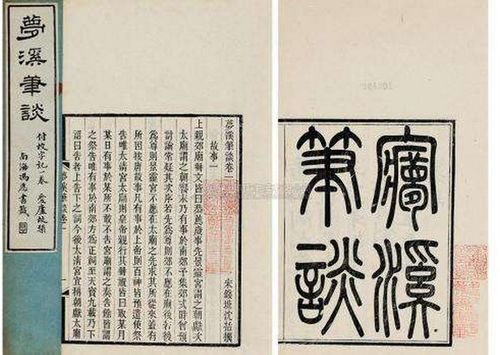 夢溪筆談
付校字記一卷 愛廬校栞
南海馮愿書籤
夢溪筆談卷一
宋錢唐沈括撰
故事一
上親郊廟冊文皆曰恭薦歲事先景靈宮謂之朝獻次
太廟謂之朝饗末乃有事於南郊予集郊式時曾預
討論常疑其次序若先爲尊則郊不應在廟後若後
爲尊則景靈宮不應在太廟之先求其所從來蓋有
所因按唐故事凡有事於上帝則百神皆預遣使祭
告唯太清宮太廟則皇帝親行其冊祝皆曰取某月
某日有事於某所不敢不告宮廟謂之奏告餘皆謂
之祭告唯有事於南郊方爲正祠至天寶九載乃下
詔曰告者上告下之詞今後太清宮宜稱朝獻太廟
夢溪筆談卷一
夢溪
筆談